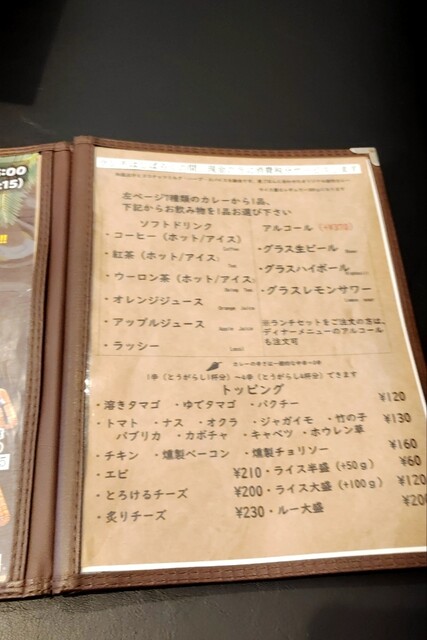 :00
:15)
!!
左ページ7種類のカレーから1品、
下記からお飲み物を1品お選び下さい
ソフトドリンク
・コーヒー（ホット/アイス）
Coffee
・紅茶（ホット/アイス）
Tea
・ウーロン茶（ホット/アイス）
Oolong Tea
・オレンジジュース
Orange Juice
・アップルジュース
Apple Juice
・ラッシー
Lassi
アルコール
・グラス生ビール
Beer
・グラスハイボール
・グラスレモンサワー
Lemon sour
※ランチセットをご注文の方は、
ディナーメニューのアルコール
も注文可
1辛（とうがらし1杯分）〜6辛（とうがらし6杯分）できます
トッピング
・溶きタマゴ ・ゆでタマゴ ・パクチー ¥120
・トマト ・ナス ・オクラ ・ジャガイモ ・竹の子 ¥130
パプリカ ・カボチャ ・キャベツ ・ホウレン草
・チキン ・燻製ベーコン ・燻製チョリソー ¥160
・エビ ¥210 ・ライス半盛（+50g） ¥60
・とろけるチーズ ¥200 ・ライス大盛（+100g） ¥120
・炙りチーズ ¥230 ・ルー大盛 ¥200